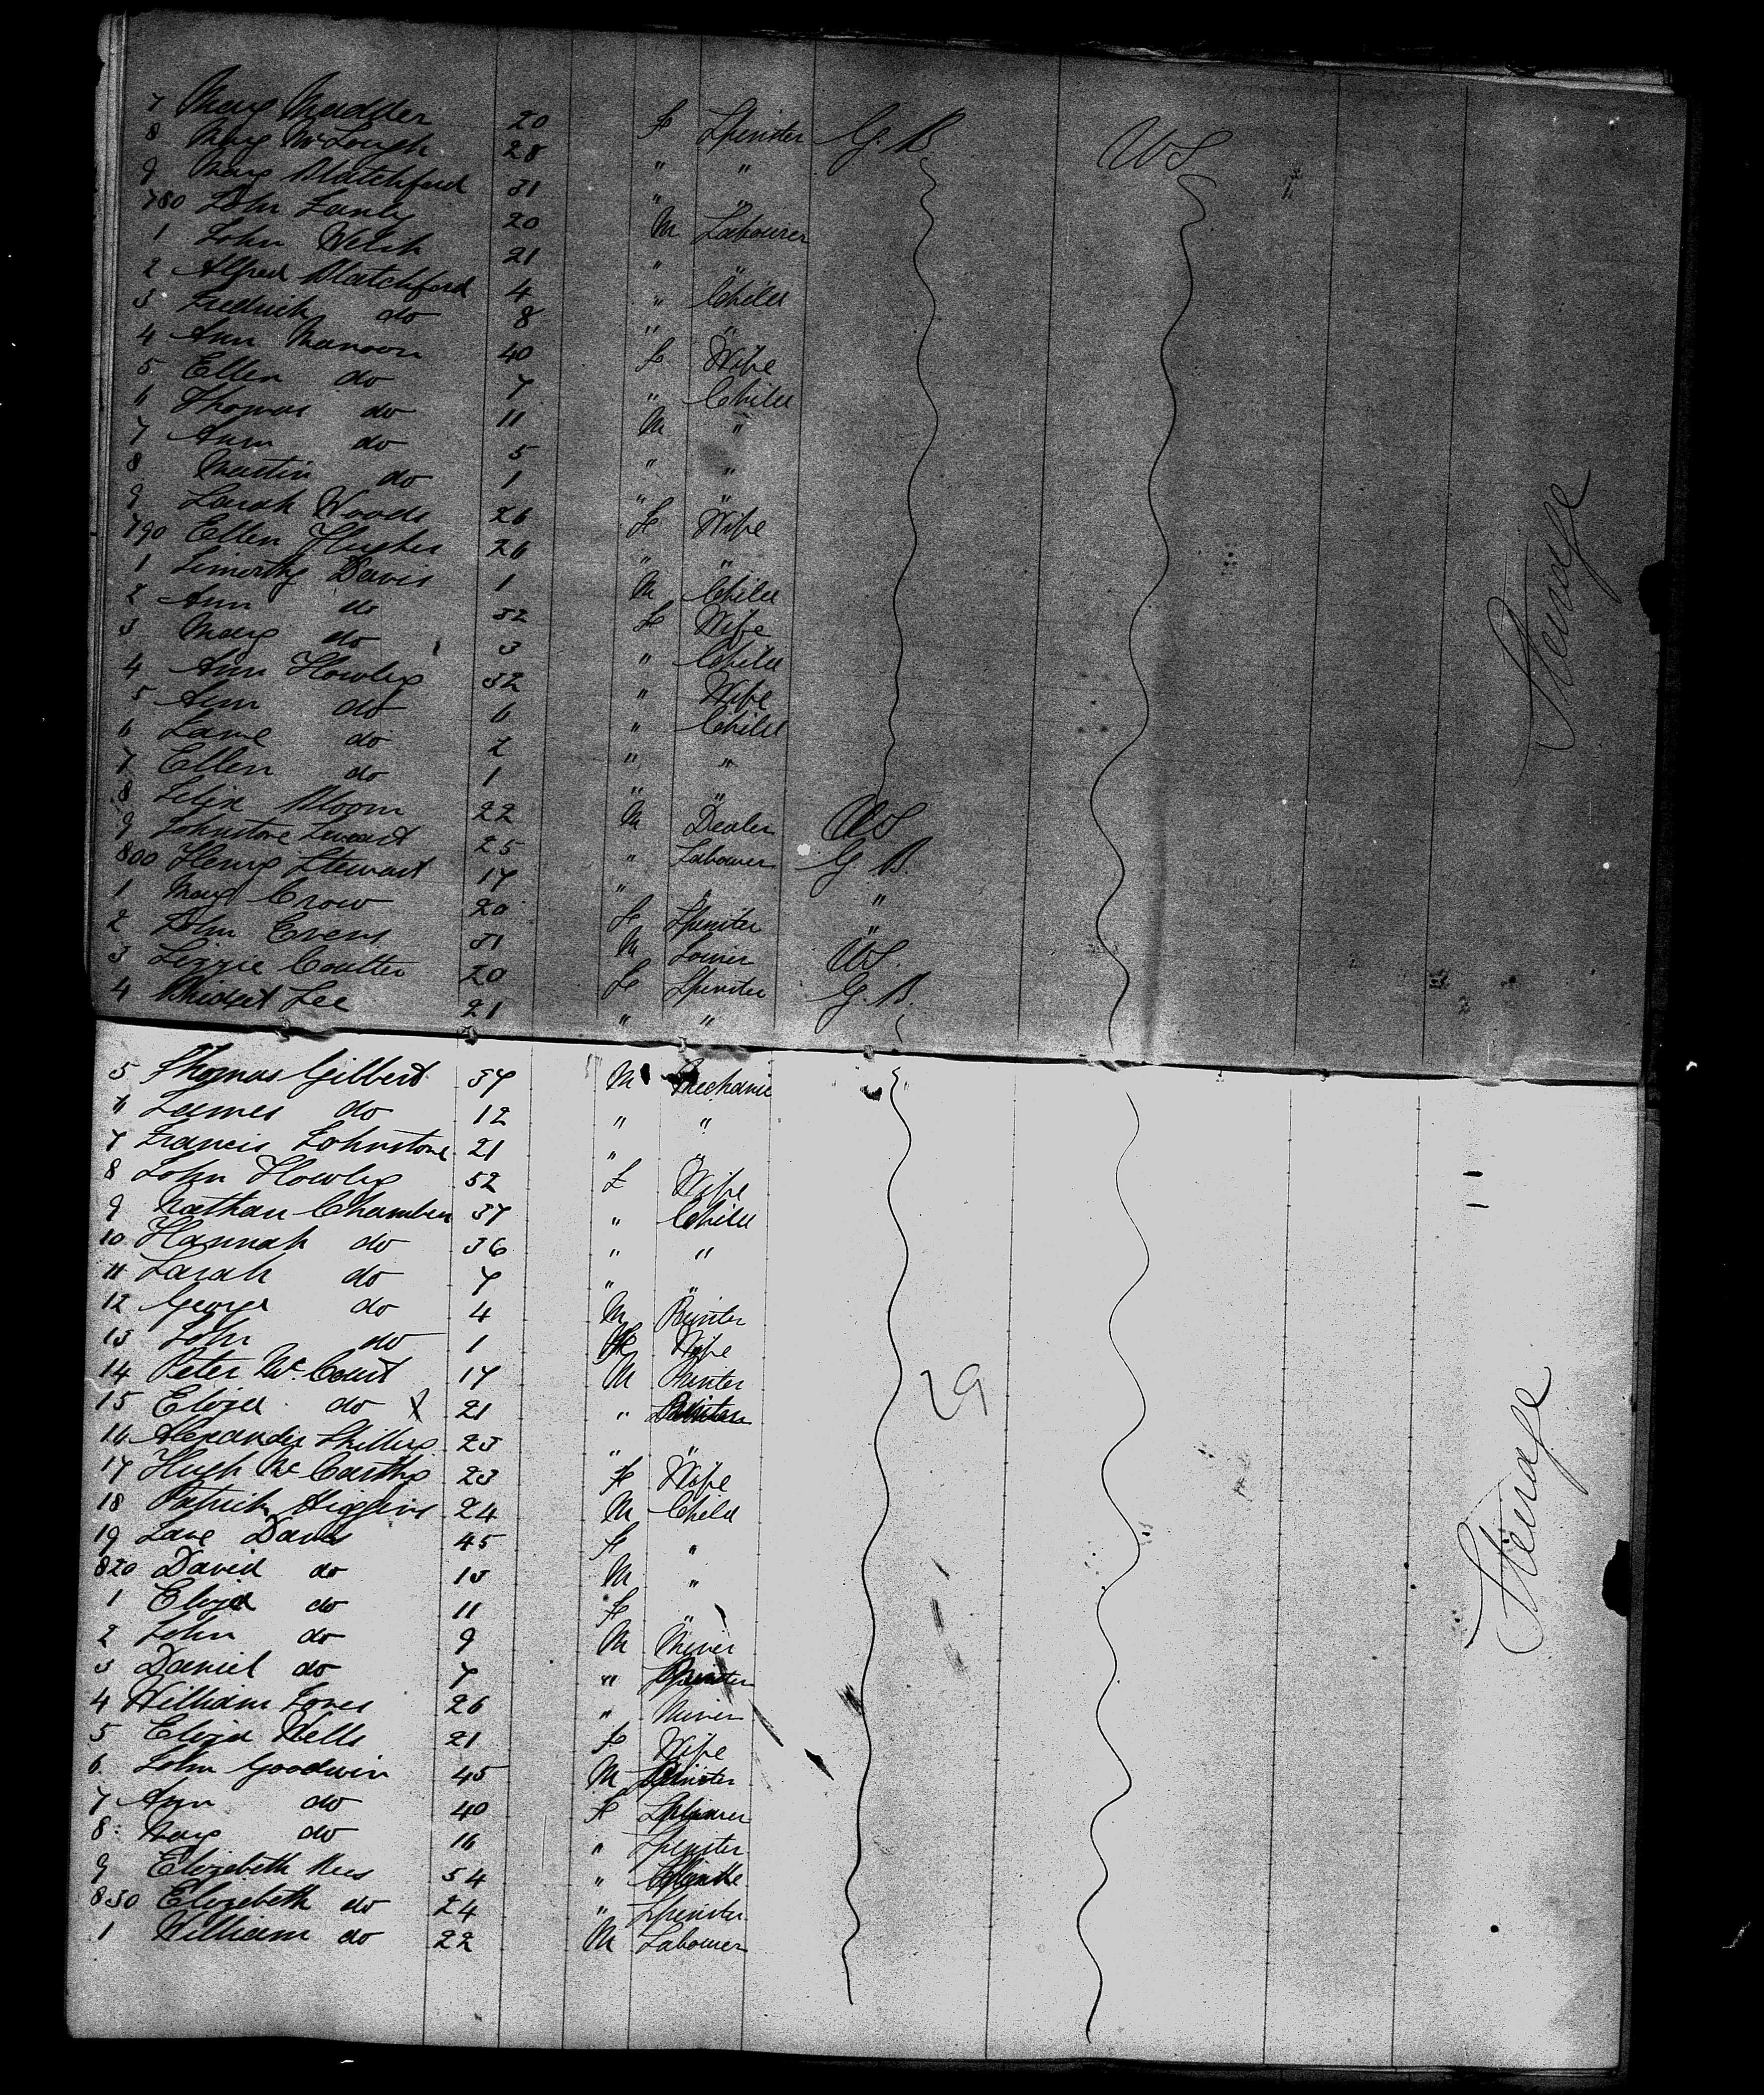 7 Mary Madden 20 F Spinster G.B. US
8 Mary McGough 28 " "
9 Mary Blatchford 31 " "
780 John Early 20 M Labourer
1 John Welsh 21 " "
2 Alfred Blatchford 4 " Child
3 Fredrick do 8 " "
4 Ann Manoon 40 F Wife
5 Ellen do 7 " Child
6 Thomas do 11 M "
7 Ann do 5 " "
8 Martin do 1 " "
9 Sarah Woods 26 F Wife
790 Ellen Hughes 26 " "
1 Timorthy Davis 1 M Child
2 Ann do 32 F Wife
3 Mary do 3 " Child
4 Ann Howley 32 " Wife
5 Ann do 6 " Child
6 Jane do 2 " "
7 Ellen do 1 " "
8 Felix Bloom 22 M Dealer US
9 Johnstone Stewart 25 " Labourer G.B.
800 Henry Stewart 17 " " "
1 Mary Crow 20 F Spinster "
2 John Evens 31 M Joiner US.
3 Lizzie Coulter 20 F Spinster G.B.
4 Bridget Lee 21 " "
Steerage
5 Thomas Gilbert 37 M Mechanic "
6 James do 12 " "
7 Francis Johnstone 21 " "
8 John Howley 32 F Wife
9 Nathan Chambers 37 " Child
10 Hannah do 36 " "
11 Sarah do 7 " "
12 George do 4 M Printer
13 John do 1 Wife
14 Peter McCourt 17 M Printer
15 Eliza do X 21 "
16 Alexander Phillips 23 " "
17 Hugh McCarthy 23 F Wife
18 Patrick Higgins 24 M Child
19 Jane Davis 45 F "
820 David do 13 M "
1 Eliza do 11 F "
2 John do 9 M Miner
3 Daniel do 7 "
4 William Jones 26 " Miner
5 Eliza Wells 21 F Wife
6 John Goodwin 45 M
7 Ann do 40 F
8 Mary do 16 " Spinster
9 Elizebeth Rees 54 "
830 Elizebeth do 24 " Spinster
1 William do 22 M Labourer
29
Steerage